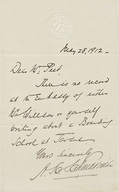 May 28, 1912.
Dear Mr. Peet,
There is no record
at the Embassy of either
or yourself
writing about a Boarding
School at
Yours Sincerely